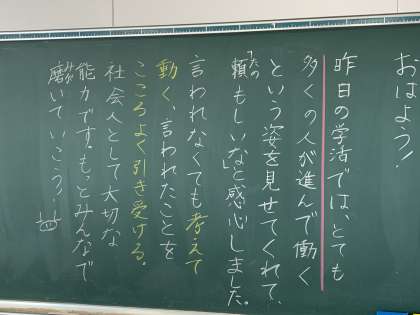 おはよう！
昨日の学活では、とても
多くの人が進んで働く
という姿を見せてくれて、
「頼もしいな」と感心しました。
たの
言われなくても考えて
動く、言われたことを
こころよく引き受ける。
社会人として大切な
能力です。もっとみんなで
磨いていこう？
みが